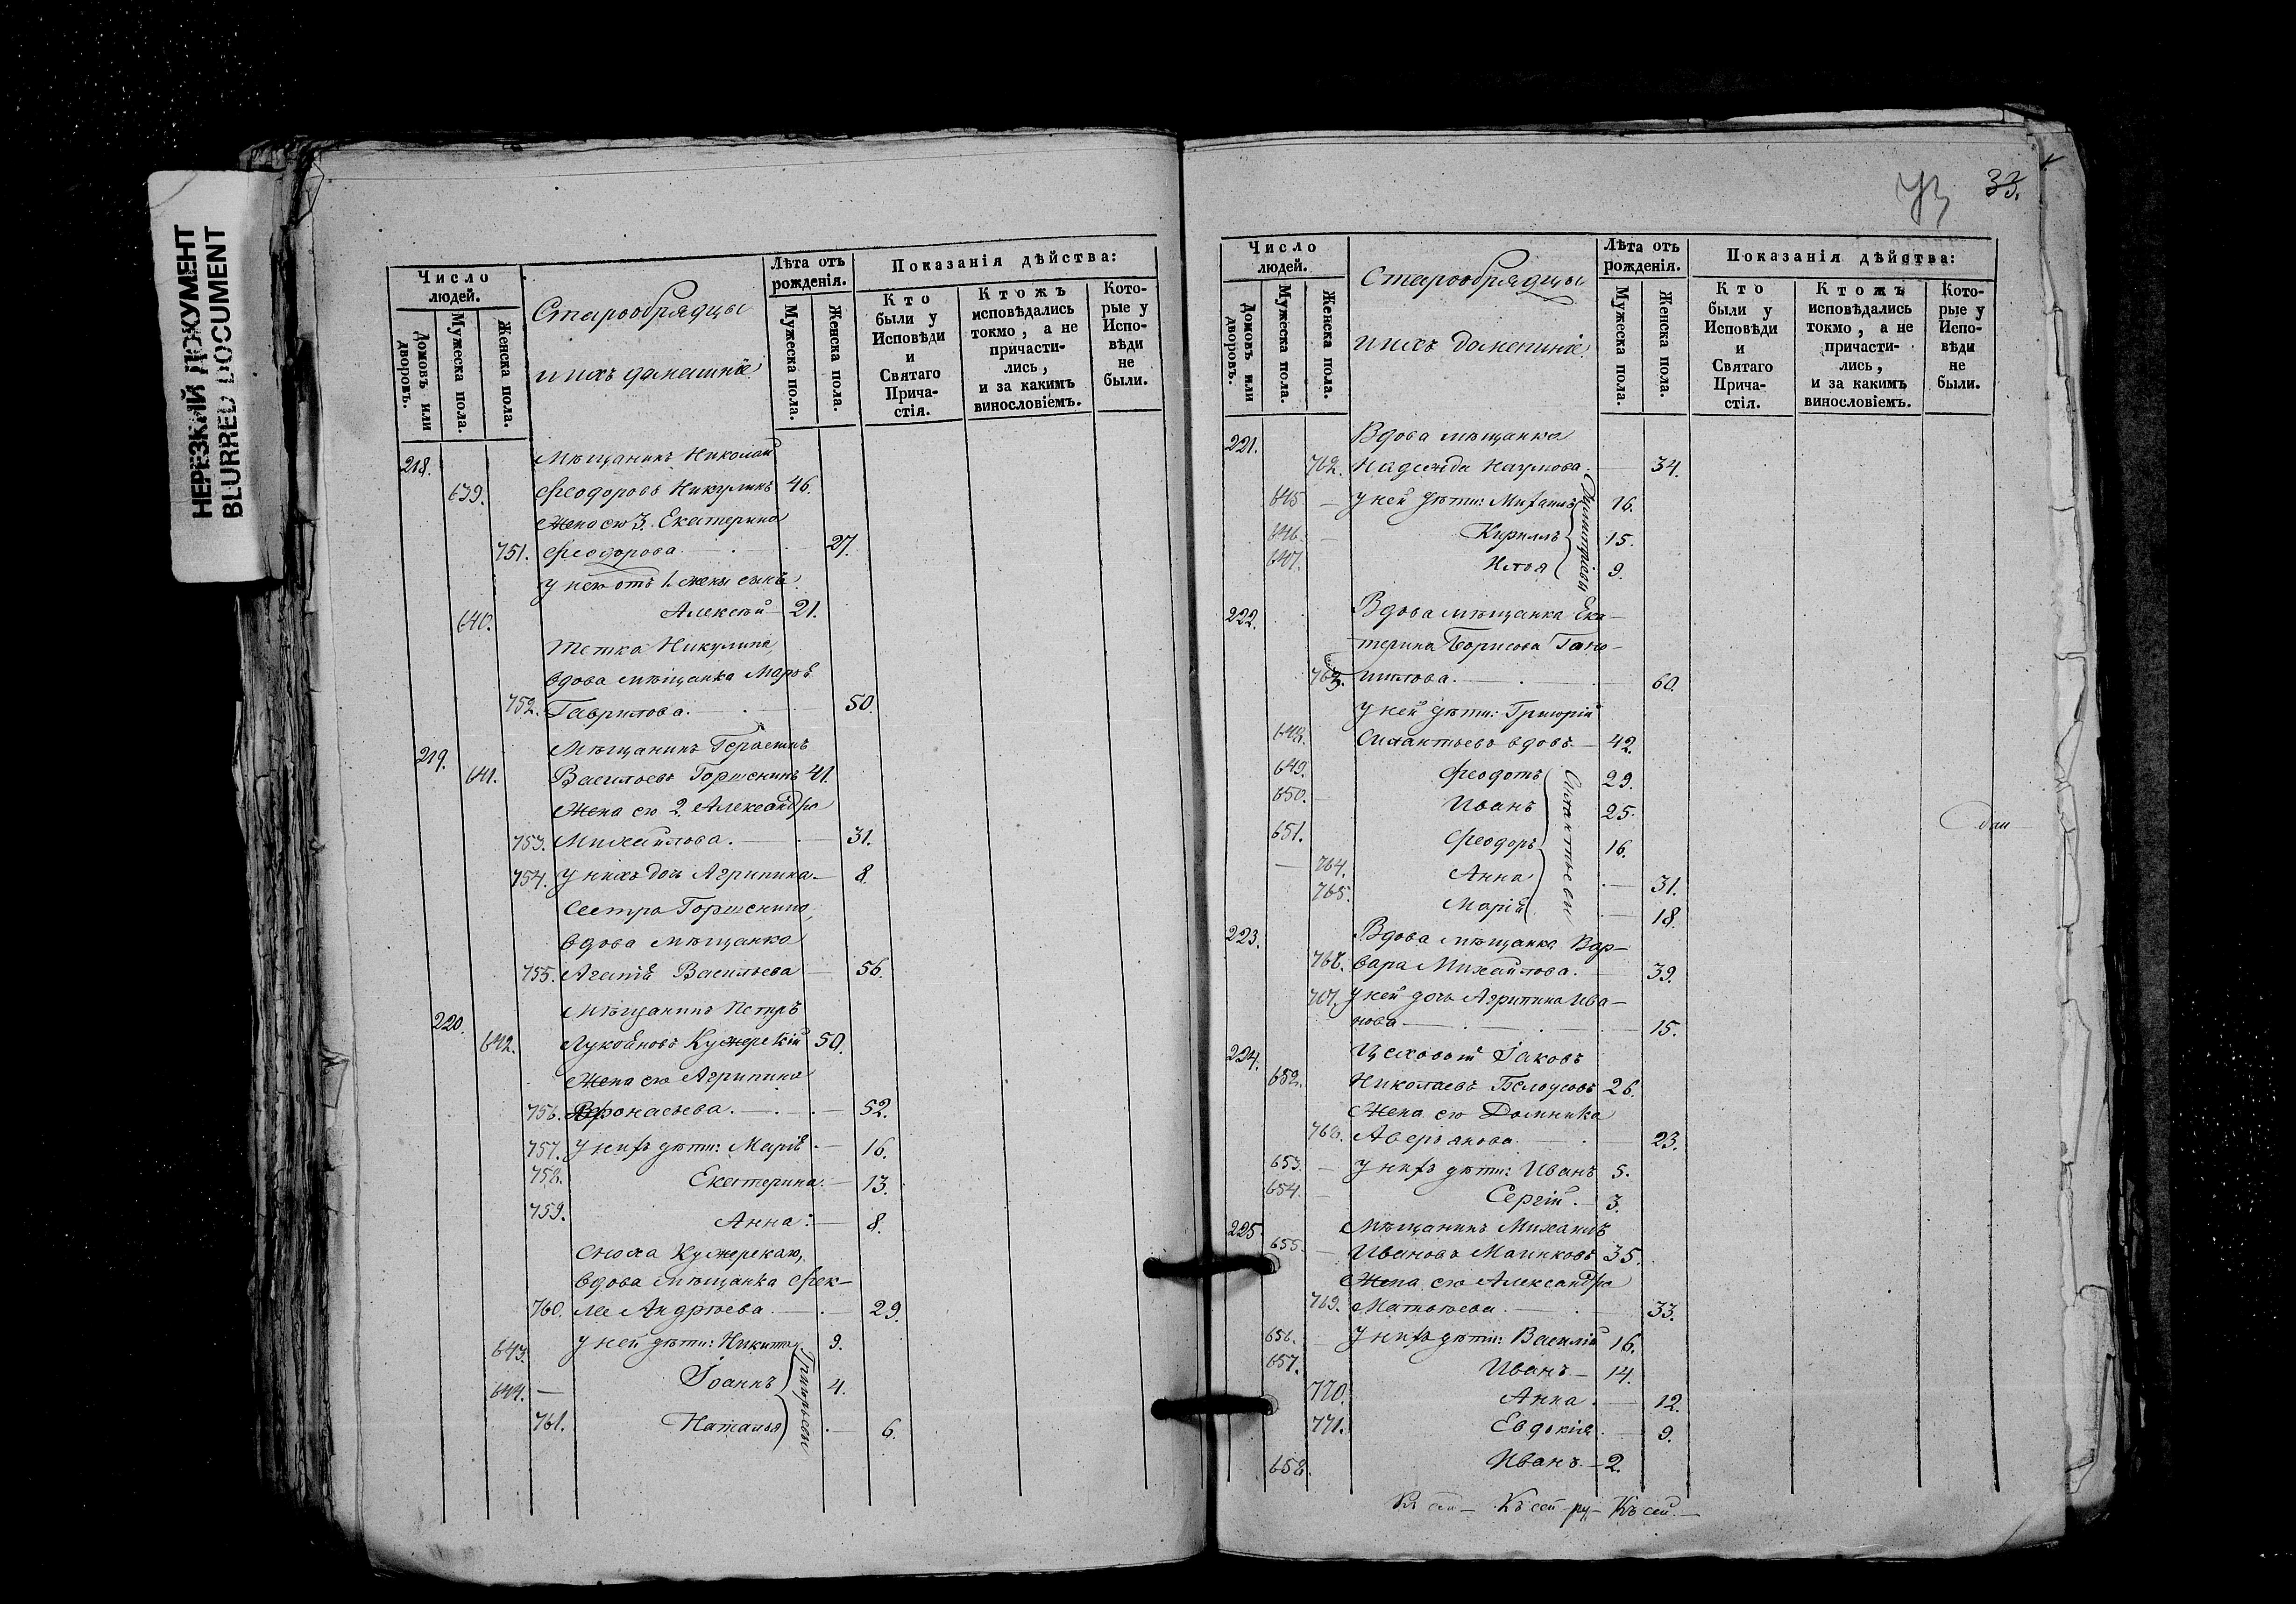 НЕРЕЗКИЙ ДОКУМЕНТ
BLURRED DOCUMENT
Число людей.
Домовъ или дворовъ.
Мужеска пола.
Женска пола.
Старообрядцы
и ихъ домашніе.
Лѣта отъ рожденія.
Мужеска пола.
Женска пола.
Показанія дѣйства:
Кто были у Исповѣди и Святаго Прича-стія.
Ктожъ исповѣдались токмо, а не причасти-лись, и за какимъ винословіемъ.
Кото-рые у Испо-вѣди не были.
218. Мѣщанинъ Николай
639. Феодоровъ Никулинъ 46.
Жена его 3. Екатерина
751. Феодорова. 27.
у него отъ 1. жены сынъ
640. Алексѣй 21.
Тетка Никулина,
вдова мѣщанка Марѳа
752. Гаврилова. 50.
219. Мѣщанинъ Герасимъ
641. Васильевъ Горшенинъ 41.
Жена его 2. Александра
753. Михайлова. 31.
754. у нихъ дочь Агрипина. 8.
Сестра Горшенина,
вдова мѣщанка
755. Агапія Васильева 56.
220. Мѣщанинъ Петръ
642. Лукояновъ 50.
Жена его Агрипина
756. Афонасьева. 52.
757. у нихъ дѣти: Марія 16.
758. Екатерина. 13.
759. Анна. 8.
Сноха
вдова мѣщанка Фек-
760. ла Андрѣева. 29.
643. у ней дѣти: Никита 9.
644. Іоаннъ 4.
761. Наталья 6.
Григорьевы
33.
Число людей.
Домовъ или дворовъ.
Мужеска пола.
Женска пола.
Старообрядцы
и ихъ домашніе.
Лѣта отъ рожденія.
Мужеска пола.
Женска пола.
Показанія дѣйства:
Кто были у Исповѣди и Святаго Прича-стія.
Ктожъ исповѣдались токмо, а не причасти-лись, и за какимъ винословіемъ.
Кото-рые у Испо-вѣди не были.
221. Вдова мѣщанка
762. Надежда Наумова. 34.
645. у ней дѣти: Михаилъ 16.
646. Кириллъ 15.
647. Илья 9.
Димитріевы
222. Вдова мѣщанка Ека-
терина Борисова
763. 60.
у ней дѣти: Григорій
648. Силантьевъ вдовъ. 42.
649. Феодотъ 29.
650. Иванъ 25.
651. Феодоръ 16.
764. Анна 31.
765. Марія 18.
Силантьевы
223. Вдова мѣщанка Вар-
766. вара Михайлова. 39.
767. у ней дочь Агрипина Ива-
нова 15.
224. Цеховой Іаковъ
652. Николаевъ Белоусовъ 26.
Жена его Домника
768. Аверьянова 23.
653. у нихъ дѣти: Иванъ 5.
654. Сергій. 3.
225. Мѣщанинъ Михаилъ
655. Ивановъ 35.
Жена его Александра
769. Матвѣева 33.
656. у нихъ дѣти: Василій 16.
657. Иванъ 14.
770. Анна 12.
771. Евдокія. 9.
658. Иванъ 2.
Къ сей